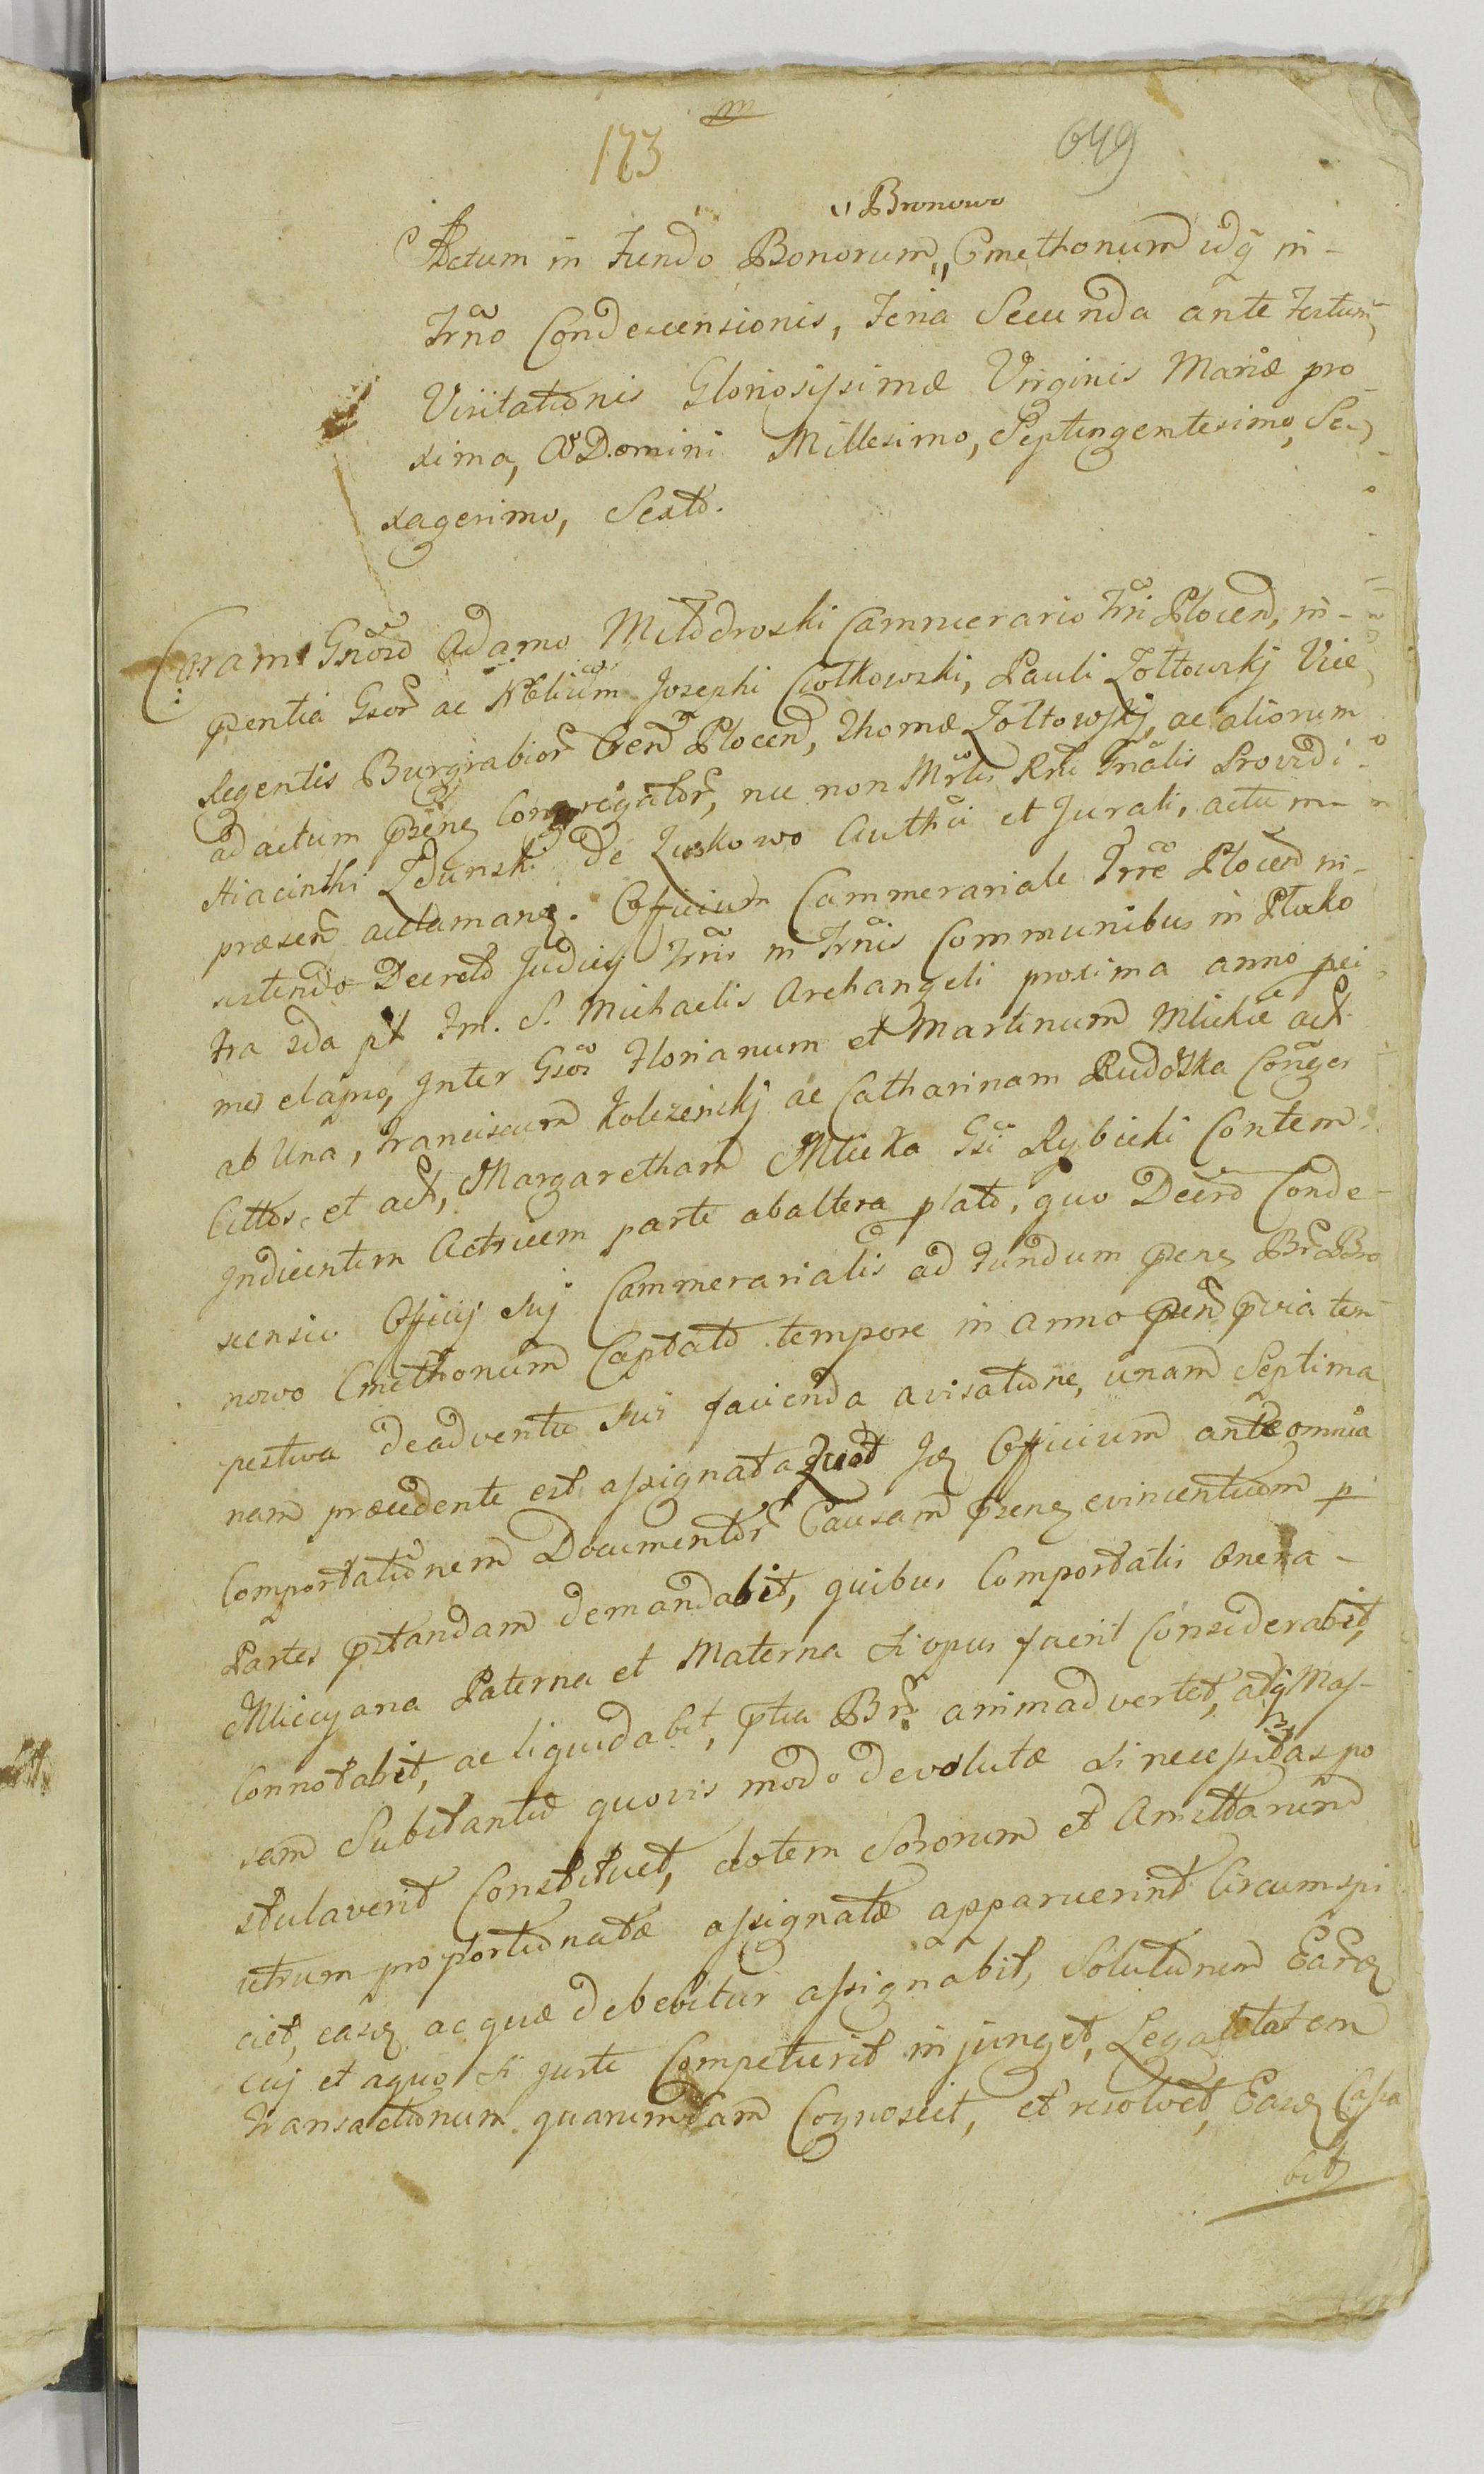 173
649
" Bronowo
Actum in Fundo Bonorum " Cmethonum idq in-
Trno Condescensionis, Feria Secunda ante Festum
Visitationis Gloriosissimæ Virginis Mariæ pro-
xima, Ao Domini Millesimo, Septingentesimo, Se-
xagesimo, Sexto.
Coram Gnoso Adamo Miłodroski Cammerario Trri Plocen, in-
pentia Gsor ac Nobilium Josephi Ciołkowski, Pauli Zołtowskj Vice
Regentis Burgrabior Cren Plocen, Thomæ Zołtowskj, ac aliorum
ad actum psens Congregator, nec non Mrlis Rni Gnalis Providi
Hiacinthi Zdunski de Zuskowo Authci et Jurati, actum
præsen acclamans. Officium Cammerariale Trræ Plocen in-
sistendo Decreto Judicij Trris in Trnis Communibus in Płocko
fra 2da pt Fm. S. Michaelis Archangeli proxima anno pri
mo elapso, Inter Gsos Florianum et Martinum Mlickie act
ab Una, Franciscum Kolczenskj ac Catharinam Rudoska Conger
Cittos, et act, Margaretham Mlicka Gsi Rybicki Contem
Indicentem Actricem parte abaltera plato, quo Decro Conde-
scensio Officij Sui Cammerarialis ad Fundum psens Br Bro
nowo Cmethonum Captato tempore in anno psen pvia tem
pestiva deadventu sui facienda avisatione, unam Septima
nam præcedente est assignata Quod Iz Officium ante omnia
Comportationem Documentor Causam psens evincentium p
Partes pstandam demandabit, quibus Comportatis Onera -
Mlicciana Paterna et Materna si opus fuerit Considerabit,
Connotabit, ac liquidabit, ptia Br. animadvertet, atq Mas-
sam Substantiæ quovis modo devolutæ si necessitas po
stulaverit Constituet, dotem Sororum et Amittarum
utrum proportionatæ assignatæ apparuerint Circumspi
ciet, easq ac quæ debebitur assignabit, Solutionem Earq
cuj et aquo si juste Competierit injunget, Legalitatem
transactionum quarumdam Cognoscet, et resolvet, Easq Cassa
bit